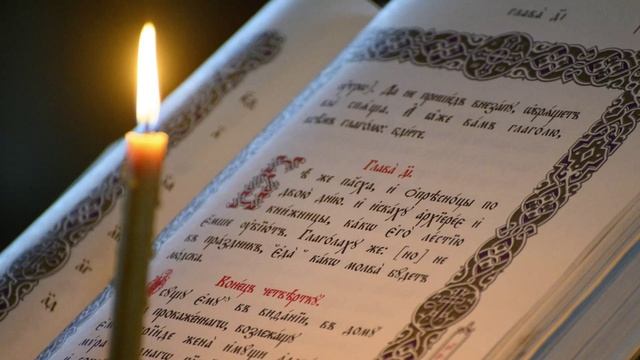 Глава̀ д҃і
ѹ҆́трѡ). Да не прише́дъ внеза́пꙋ, ѡ҆брѧ́щетъ
вы̀ спѧ́щѧ. И҆ ꙗ҆̀же ва́мъ глаго́лю,
всѣ̑мъ глаго́лю: бди́те.
Глава̀ д҃і.
Бѣ̀ же па́сха, и҆ ѡ҆прѣсно́цы по
двою̀ дні́ю. и҆ и҆ска́хꙋ а҆рхїере́є и҆
кни́жницы, ка́кѡ є҆го̀ ле́стїю
є҆́мше ѹ҆бїю́тъ. Глаго́лахꙋ же: [но] не
въ пра́здникъ, є҆да̀ ка́кѡ молва̀ бꙋ́детъ
людска̀.
Коне́цъ четверткꙋ̀.
сꙋ́щꙋ є҆мꙋ̀ въ вида́нїи, въ домꙋ̀
прокаже́ннагѡ, возлежа́щꙋ
жена̀ и҆мꙋ́щи